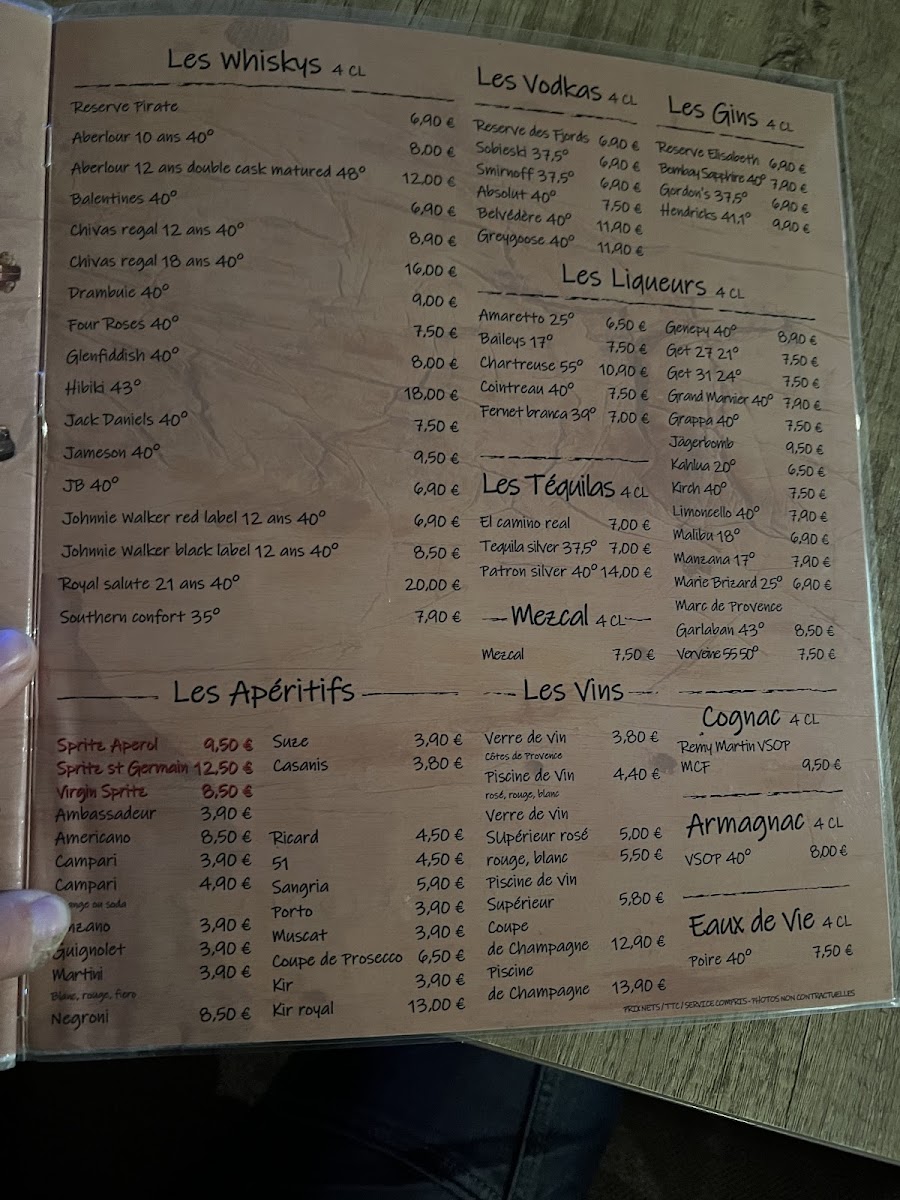 Les Whiskys 4 CL
Reserve Pirate 6,90 €
Aberlour 10 ans 40° 8,00 €
Aberlour 12 ans double cask matured 48° 12,00 €
Balentines 40° 6,90 €
Chivas regal 12 ans 40° 8,90 €
Chivas regal 18 ans 40° 16,00 €
Drambuie 40° 9,00 €
Four Roses 40° 7,50 €
Glenfiddish 40° 8,00 €
Hibiki 43° 18,00 €
Jack Daniels 40° 7,50 €
Jameson 40° 9,50 €
JB 40° 6,90 €
Johnnie Walker red label 12 ans 40° 6,90 €
Johnnie Walker black label 12 ans 40° 8,50 €
Royal salute 21 ans 40° 20,00 €
Southern confort 35° 7,90 €
Les Vodkas 4 CL
Reserve des Fjords 6,90 €
Sobieski 37,5° 6,90 €
Smirnoff 37,5° 6,90 €
Absolut 40° 7,50 €
Belvédère 40° 11,90 €
Greygoose 40° 11,90 €
Les Gins 4 CL
Reserve Elisabeth 6,90 €
Bombay Sapphire 40° 7,90 €
Gordon's 37,5° 6,90 €
Hendricks 41,1° 9,90 €
Les Liqueurs 4 CL
Amaretto 25° 6,50 €
Baileys 17° 7,50 €
Chartreuse 55° 10,90 €
Cointreau 40° 7,50 €
Fernet branca 39° 7,00 €
Genepy 40° 8,90 €
Get 27 21° 7,50 €
Get 31 24° 7,50 €
Grand Marnier 40° 7,90 €
Grappa 40° 7,50 €
Jägerbomb 9,50 €
Kahlua 20° 6,50 €
Kirch 40° 7,50 €
Limoncello 40° 7,90 €
Malibu 18° 6,90 €
Manzana 17° 7,90 €
Marie Brizard 25° 6,90 €
Marc de Provence
Garlaban 43° 8,50 €
Verveine 55 50° 7,50 €
Les Téquilas 4 CL
El camino real 7,00 €
Tequila silver 37,5° 7,00 €
Patron silver 40° 14,00 €
Mezcal 4 CL
Mezcal 7,50 €
Les Apéritifs
Spritz Aperol 9,50 €
Spritz st Germain 12,50 €
Virgin Spritz 8,50 €
Ambassadeur 3,90 €
Americano 8,50 €
Campari 3,90 €
Campari 4,90 €
ange ou soda
nzano 3,90 €
Guignolet 3,90 €
Martini 3,90 €
Blanc, rouge, fiero
Negroni 8,50 €
Suze 3,90 €
Casanis 3,80 €
Ricard 4,50 €
51 4,50 €
Sangria 5,90 €
Porto 3,90 €
Muscat 3,90 €
Coupe de Prosecco 6,50 €
Kir 3,90 €
Kir royal 13,00 €
Les Vins
Verre de vin 3,80 €
Côtes de Provence
Piscine de Vin 4,40 €
rosé, rouge, blanc
Verre de vin
Supérieur rosé 5,00 €
rouge, blanc 5,50 €
Piscine de vin
Supérieur 5,80 €
Coupe
de Champagne 12,90 €
Piscine
de Champagne 13,90 €
Cognac 4 CL
Remy Martin VSOP
MCF 9,50 €
Armagnac 4 CL
VSOP 40° 8,00 €
Eaux de Vie 4 CL
Poire 40° 7,50 €
PRIX NETS / TTC / SERVICE COMPRIS - PHOTOS NON CONTRACTUELLES